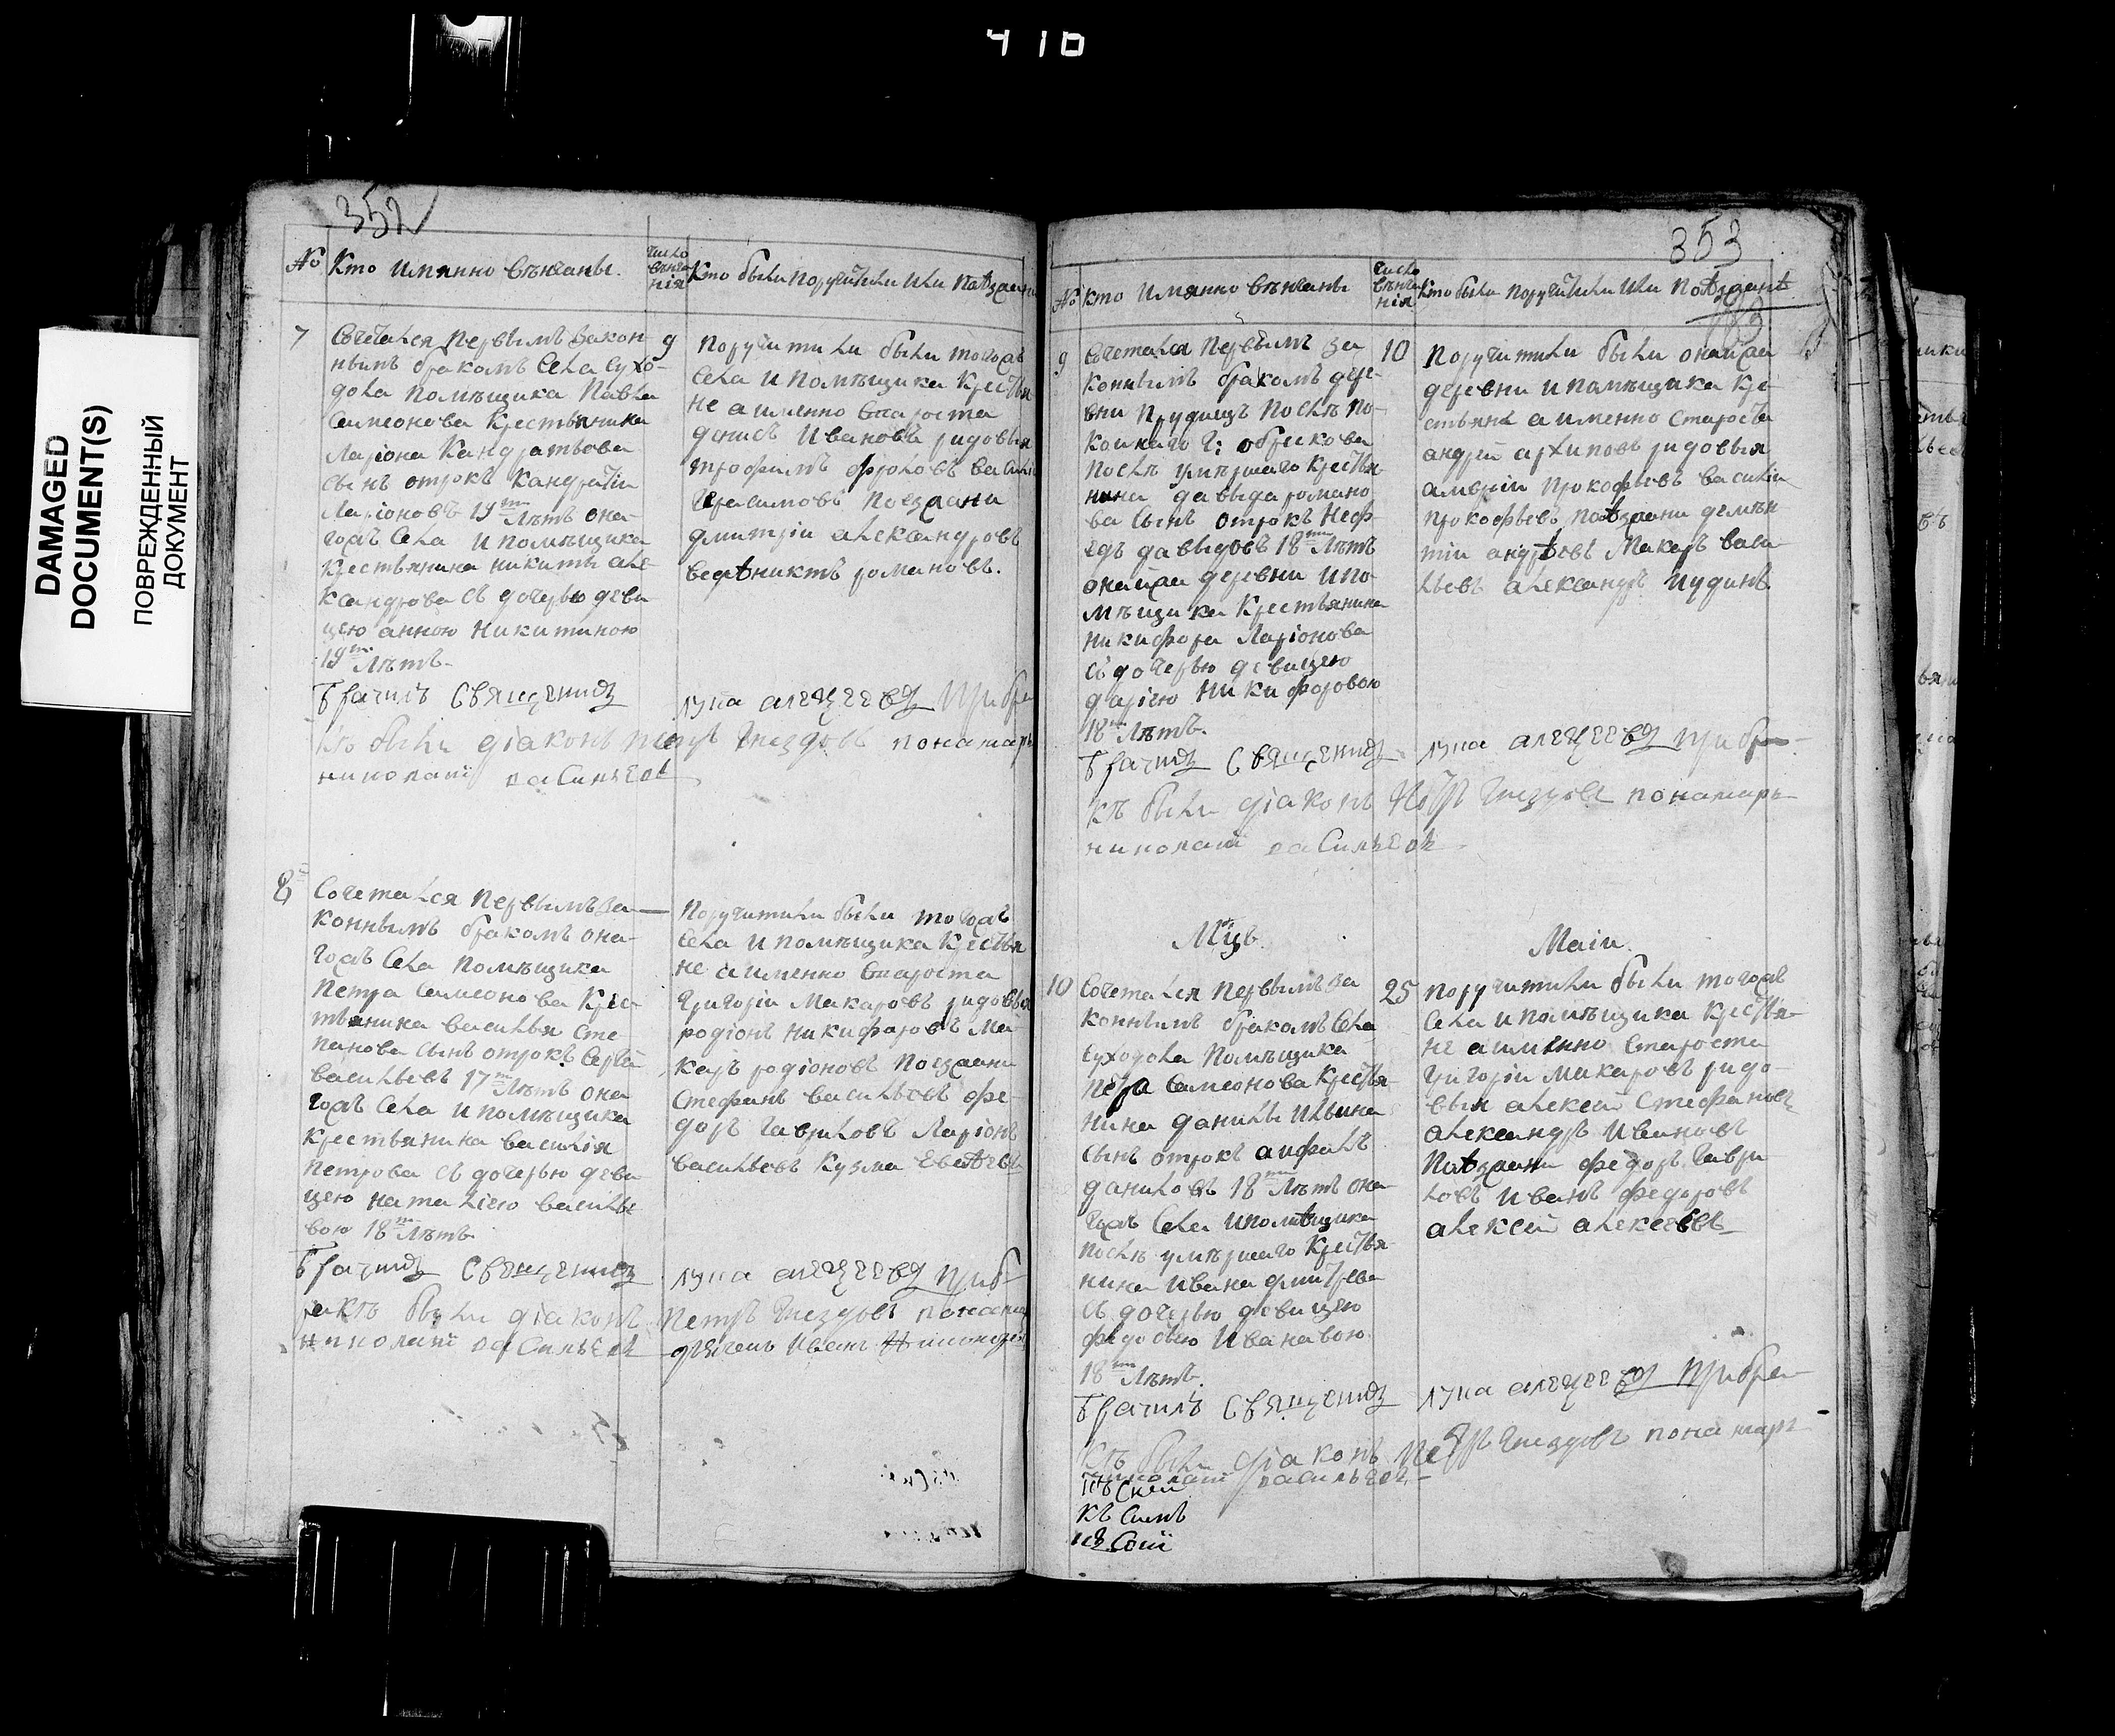 410
DAMAGED
DOCUMENT(S)
ПОВРЕЖДЕННЫЙ
ДОКУМЕНТ
352
№ Кто имянно венчаны.
число венчания
Кто были поручители или поѣзжани
7
Сочетался первымъ закон
нымъ бракомъ села Сухо-
дола помѣщика Павла
Симеонова крестьянина
Ларіона Кандратьева
сынъ отрокъ Кандратіи
Ларіоновъ 19ти лѣтъ она-
гожъ села и помѣщика
крестьянина никиты але-
ксандрова съ дочерью деви
цею анною никитиною
19ти лѣтъ.
9
Поручители были тогожъ
села и помѣщика крестья
не а именно староста
денисъ Ивановъ рядовыя
трофимъ фроловъ васили
Герасимовъ поезжани
дмитріи александровъ
романовъ.
Брачилъ священникъ лука алеѯеевъ при бра
къ были діаконъ петръ Гнездовъ понамарь
николаи василъевъ
8
Сочетался первымъ за-
коннымъ бракомъ она-
гожъ села помѣщика
Петра Симеонова крес-
тьянина василья Сте
панова сынъ отрокъ Сергѣи
васильевъ 17ти лѣтъ она
гожъ села и помѣщика
крестьянина василія
петрова съ дочерью деви
цею наталіею василье
вою 18ти лѣтъ.
Поручители были тогожъ
села и помѣщика крестья
не а именно староста
Григоріи Макаровъ рядовыя
родіонъ никифоровъ Ма-
каръ родіоновъ поезжани
Стефанъ васильевъ фе-
доръ Гавриловъ Ларіонъ
васильевъ Кузма
Брачилъ священникъ лука алеѯеевъ при б-
ракѣ были діаконъ Петръ Гнездовъ понамарь
николаи василъевъ дьячекъ Иванъ
353
183
№ кто имянно венчаны
число венчанія
Кто были поручители или поѣзжанѣ
9
Сочетался первымъ за
коннымъ бракомъ дере-
вни Прудищъ послѣ по-
коинаго Г: обрескова
послѣ умершаго крестья-
нина давыда романо
ва сынъ отрокъ
давыдовъ 18ти лѣтъ
онаиже деревни и по-
мѣщика крестьянина
никифора Ларіонова
съ дочерью девицею
даріею никифоровою
18ти лѣтъ.
10
Поручители были онаиже
деревни и помѣщика кре-
стьяне а именно староста
андреи архиповъ рядовыя
прокофьевъ василіи
прокофьевъ, поѣзжани демен
тіи андрѣевъ Макаръ васи
льевъ александръ иудинъ
Брачилъ священникъ лука алеѯеевъ при бра-
къ были діаконъ Петръ Гнездовъ понамарь
николаи василъевъ
Мцъ.
Маіи.
10
Сочетался первымъ за
коннымъ бракомъ села
Суходола помѣщика
петра Симеонова крестья-
нина данилы ильина
сынъ отрокъ
даниловъ 18ти лѣтъ она-
гожъ села и помѣщика
послѣ умѣршаго крестья-
нина ивана дмитрева
съ дочерью девицею
ивановою.
18ти лѣтъ.
25
поручители были тогожъ
села и помѣщика крестья-
не а именно староста
Григоріи Макаровъ рядо-
выя алексеи Стефановъ
александръ ивановъ
поѣзжани федоръ Гаври
ловъ иванъ федоровъ
алексеи алексеевъ
Брачилъ священникъ лука алеѯеевъ при бра-
къ были діаконъ Петръ Гнездовъ понамарь
николаи василъевъ